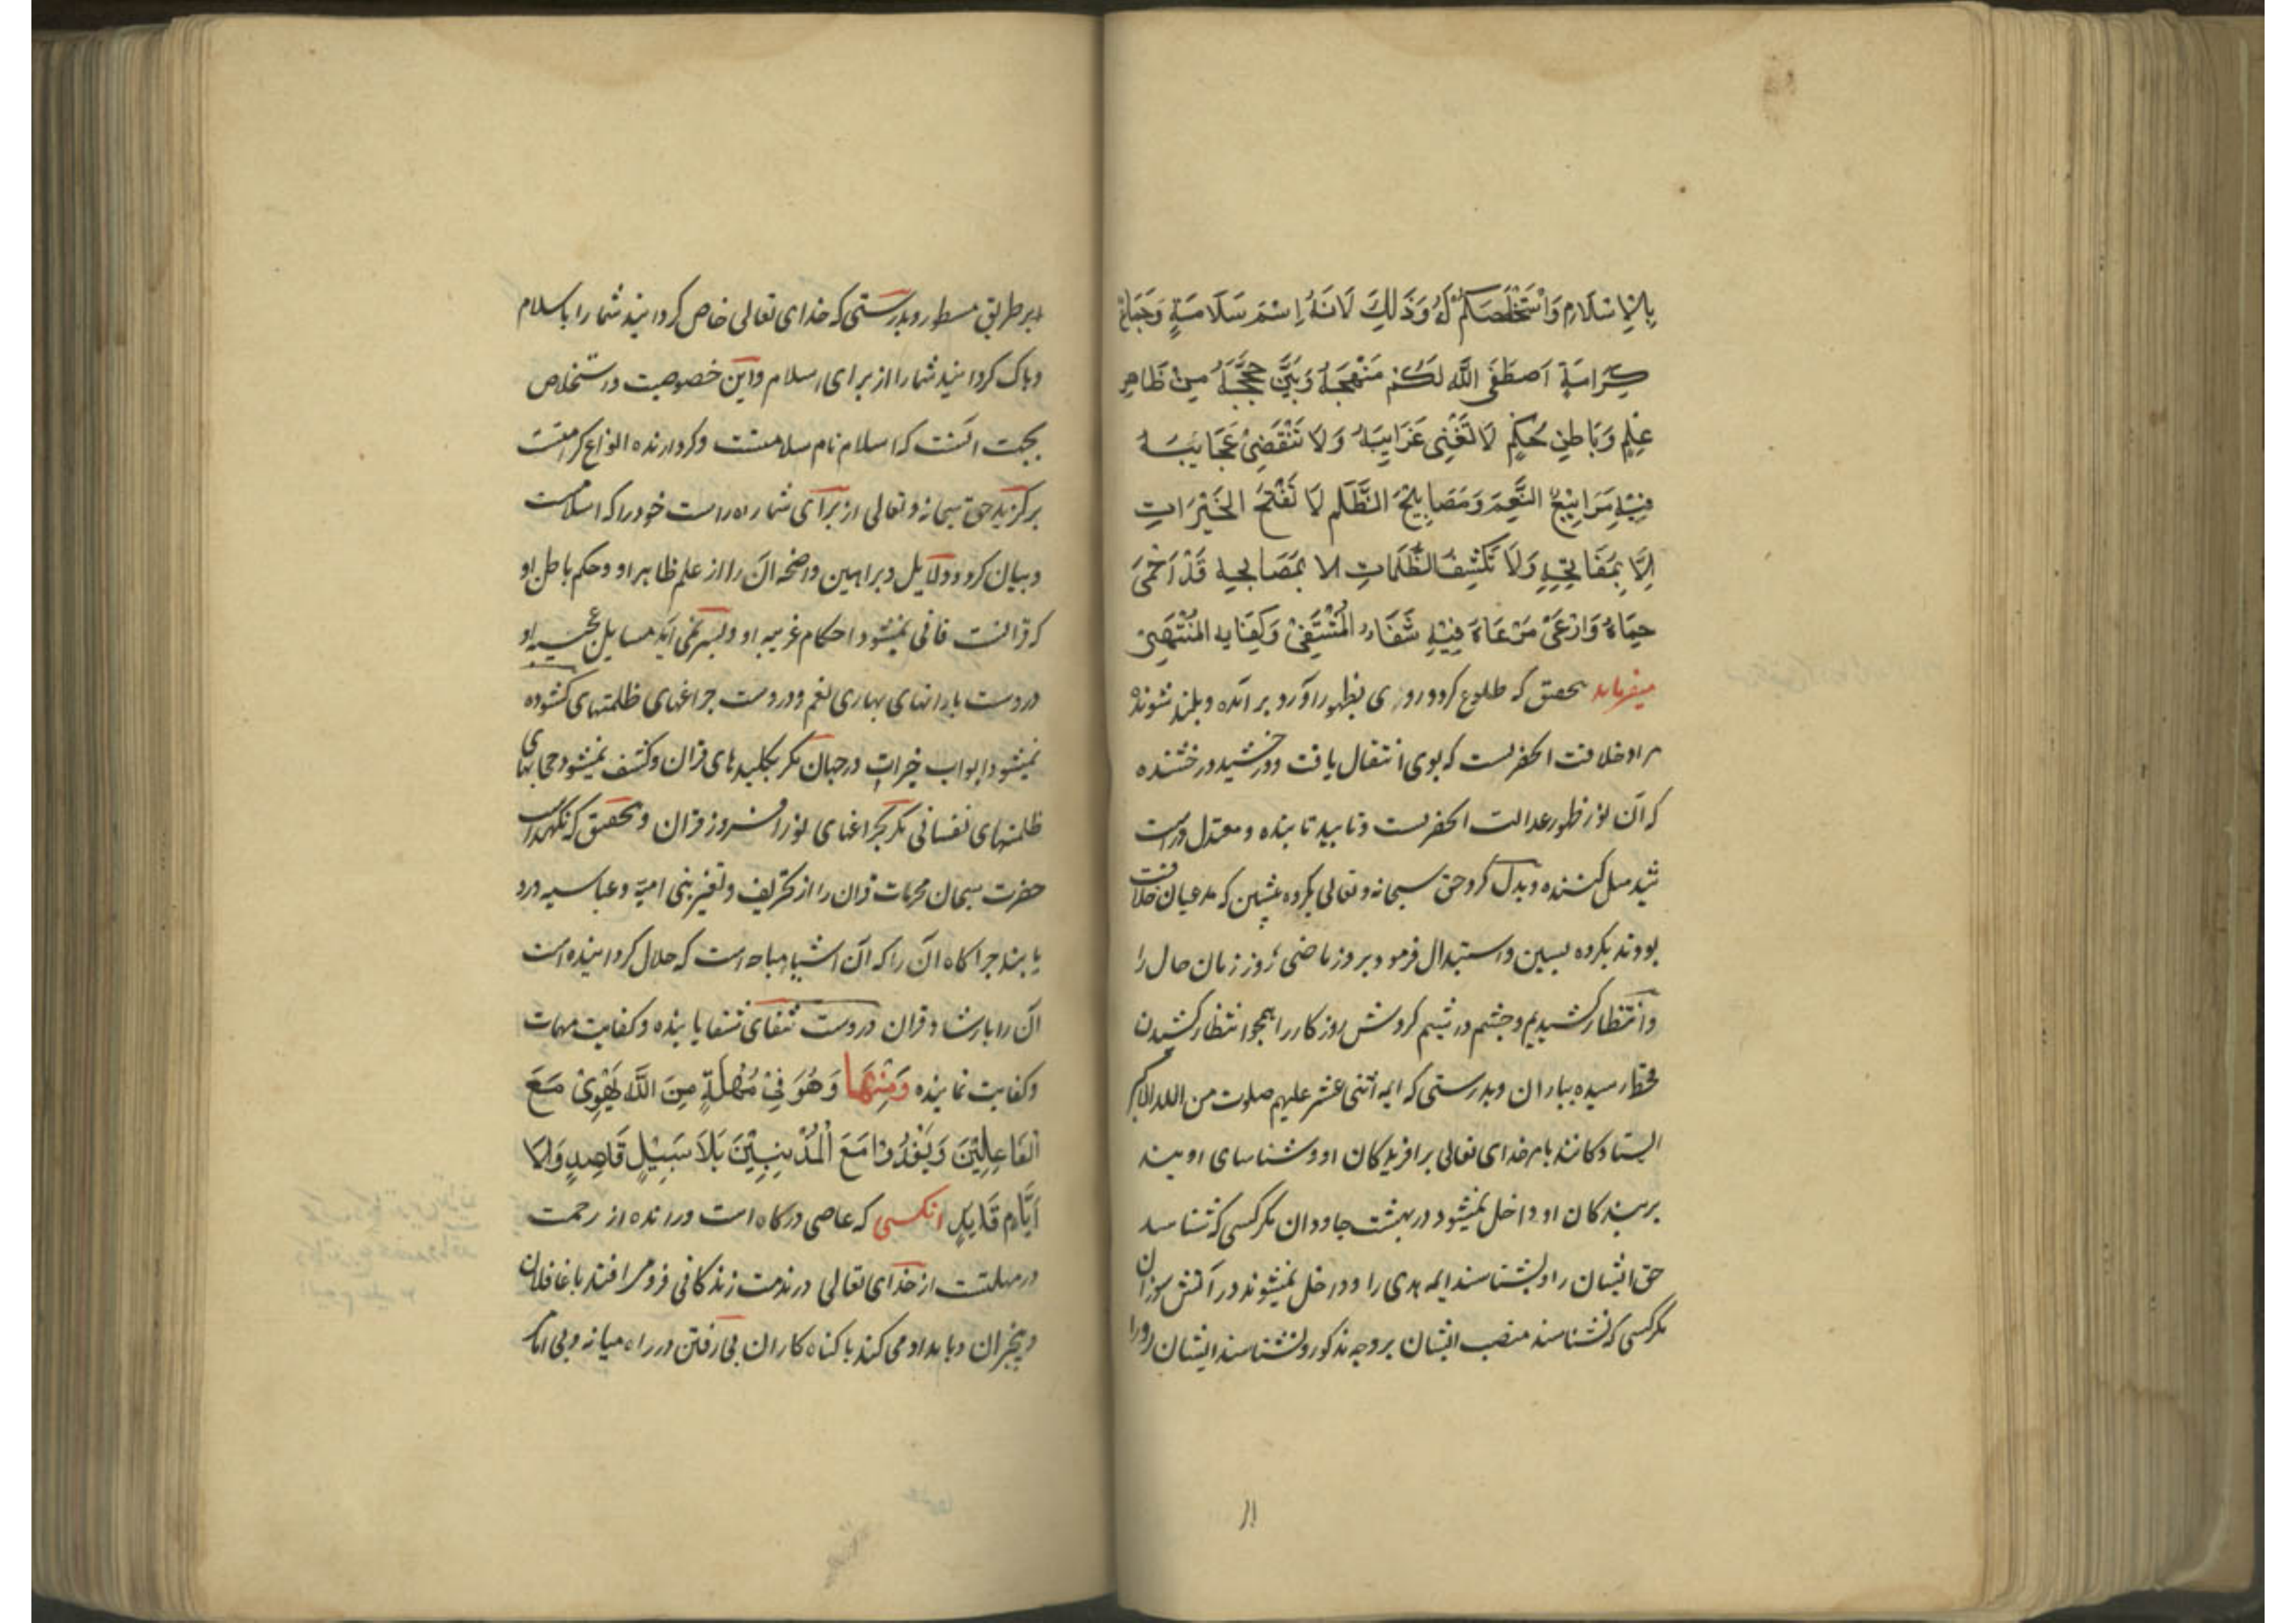 بِالْاِسْلَامِ وَاسْتَخْلَصَكُمْ لَهُ وَذَلِكَ لَانَهُ اِسْمَ سَلَامَةٍ وَجِمَاعُ
كَرَامَةٍ اَصطَفَى اللَّه لَكُمْ مَنْهَجَهُ وَبَيَّنَ حُجَجَهُ مِنْ ظَاهِرِ
عِلْمٍ وَبَاطِنِ حُكْمٍ لَا تَفْنِى غَرَايِبُهُ وَلَا تَنْقَضِىْ عَجَايِبُهُ
فِيْهِ مَرَابِيْعُ النَّعِمَ وَمَصَابِيْحُ الظُّلَمِ لَا تُفْتَحُ الخَيْرَاتِ
اِلَّا بِمَفَاتِحِهِ وَلَا تَكْشِفُ الظُّلَمَاتِ الا بِمَصَابِحِهِ قَدْ اَحْمَىَ
حِمَاهُ وَارْعَىَ مَرْعَاهَ فِيْهِ شَفَاءُ المُشْتَفِىْ وَكِفَايه المُنْتَهِىْ
ميفرمايد بتحقيق كه طلوع كرد و روزى بظهور اورد و بر آمده و بلند شونده
مراد خلافت انحضرتست كه بوى انتقال يافت و خورشيد درخشنده
كه آن نور ظهور عدالت انحضرتست و تابيد تابنده و معتدل و راست
شد ميل كننده و بدل كرد حق سبحانه و تعالى بكروه پيشين كه مدعيان خلافت
بودند بكروه پسين و استبدال فرمود بروز ماضى روز زمان حال را
و انتظار كشيديم و چشم در شيم كردش روزكار را همچو انتظار كشيدن
قحط رسيده بباران و بدرستى كه ايمه اثنى عشر عليهم صلوت من الله الاكبر
ايستادكانند بامر خداى تعالى بر افريدكان او و شناساى اويند
بر بندكان او داخل نميشود در بهشت جاودان مكر كسى كه شناسد
حق ايشان را و بشناسند ايمه هدى را و داخل نميشوند در آتش سوزان
مكر كسى كه نشناسند منصب ايشان بر وجه مذكور و نشناسند ايشان او را
۱۱
بر طريق مسطور و بدرستى كه خداى تعالى خاص كردانيد شما را باسلام
و پاك كردانيد شما را از براى اسلام و اين خصوصيت در استخلاص
بجهت انست كه اسلام نام سلامتست و كردارنده انواع كرامتست
بركزيد حق سبحانه و تعالى از براى شما راه راست خود را كه اسلامست
و بيان كرد و دلايل و براهين واضحه آن را از علم ظاهر او و حكم باطن او
كه قرانست فانى نميشود احكام غريبه او و بسر نمى آيد مسايل عجيبه او
دروست بارانهاى بهارى نعم و دروست چراغهاى ظلمتهاى كشوده
نميشود ابواب خيرات در جهان مكر بكليدهاى قران و كشف نميشود حجابهاى
ظلمتهاى نفسانى مكر بچراغهاى نور افروز قران و بتحقيق كه نكهداشت
حضرت سبحان محرمات قران را از تحريف و تغير بنى اميه و عباسيه و رد
يابند چراكاه آن را كه آن اشيا مباحه است كه حلال كردانيده است
آن را بارشاد قران دروست شفاى شفا يابنده و كفايت مهمات
و كفايت نماينده وَمِنْهَا وَهُوَ فِىْ مُهْلَةٍ مِنَ اللَّه يَهْوِىْ مَعَ
الْغَافِلِيْنَ وَيَغْدُوْا مَعَ الْمُذْنِبِيْنَ بَلَا سَبِيْلٍ قَاصِدٍ وَلَا
اِمَامٍ قَايِدٍ انكسى كه عاصى دركاه است و رانده از رحمت
در مهلتست از خداى تعالى در مدت زندكانى فرو مى افتد با غافلان
و بيخبران و بامداد مى كند با كناه كاران بى رفتن در راه ميانه و بى امام